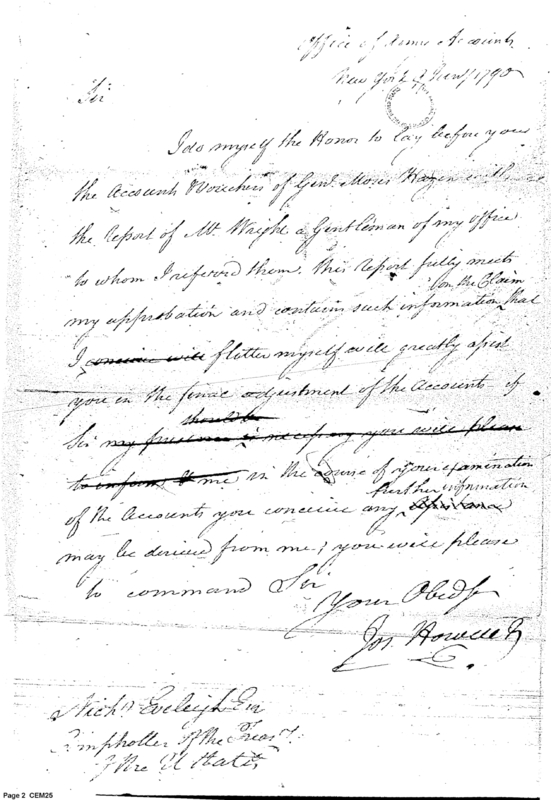 Office of Army Accounts
New York Jany 1790
Sir
I do myself the Honor to lay before you
the Accounts & Vouchers of Genl. Moses Hazen with
the report of Mr. Wright a Gentleman of my office
to whom I referred them. This report fully meets
on the Claim
my approbation and contains such information that
I conceive will flatter myself will greatly assist
you in the final adjustment of the Accounts. if
should be
Sir my presence is necessary you will please
to inform me in the course of your examination
further information
of the Accounts you conceive any assistance
may be derived from me, you will please
to command Sir
Your Obedt
Jos. Howell Jr
Nichs. Eveleigh Esr
Comptroller of the Treasy
of the U States
Page 2 CEM25